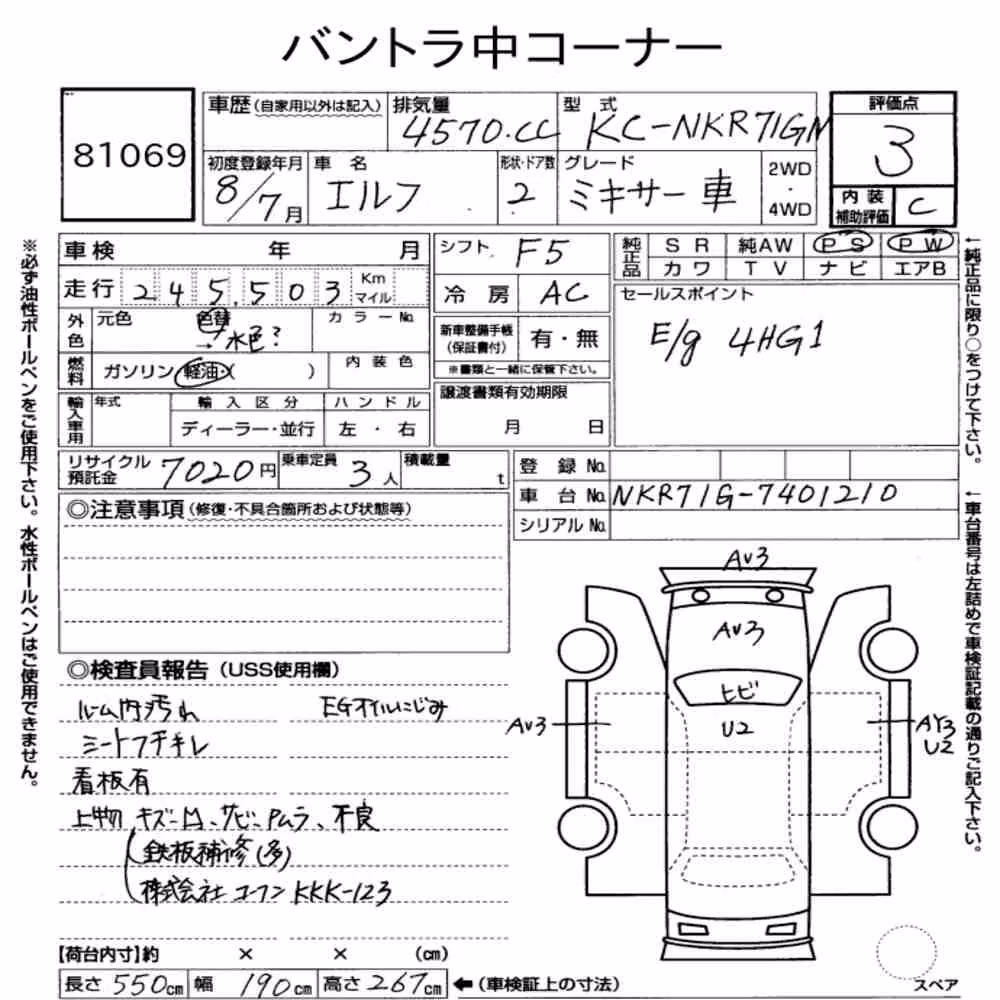 バントラ中コーナー
81069
車歴(自家用以外は記入) 排気量 4570.CC 型式 KC-NKR71GN
評価点 3
初度登録年月 8/7月 車名 エルフ 形状・ドア数 2 グレード ミキサー車 2WD・4WD
内装補助評価 C
車検 年 月 シフト F5 純正品 SR 純AW PS PW
カワ TV ナビ エアB
走行 245,503 Km マイル 冷房 AC セールスポイント
外色 元色 色替 →水色? カラーNo. 新車整備手帳(保証書付) 有・無 E/g 4HG1
※書類と一緒に保管下さい。
燃料 ガソリン・軽油・( ) 内装色
譲渡書類有効期限 月 日
輸入車用 年式 輸入区分 ハンドル
ディーラー・並行 左・右
リサイクル預託金 7020円 乗車定員 3人 積載量 t 登録No.
車台No. NKR71G-7401210
シリアルNo.
◎注意事項(修復・不具合箇所および状態等)
AV3
AV3
ヒビ
U2
AV3
AY3
U2
◎検査員報告(USS使用欄)
ルーム内汚れ EGオイルにじみ
シートフチキレ
看板有
上物 キズ凹、サビ、Pムラ、不良
鉄板補修(多)
株式会社 KKK-123
【荷台内寸】約 × × (cm)
長さ550cm 幅190cm 高さ267cm ←(車検証上の寸法)
スペア
※必ず油性ボールペンをご使用下さい。水性ボールペンはご使用できません。
←純正品に限り○をつけて下さい。
←車台番号は左詰めで車検証記載の通りご記入下さい。